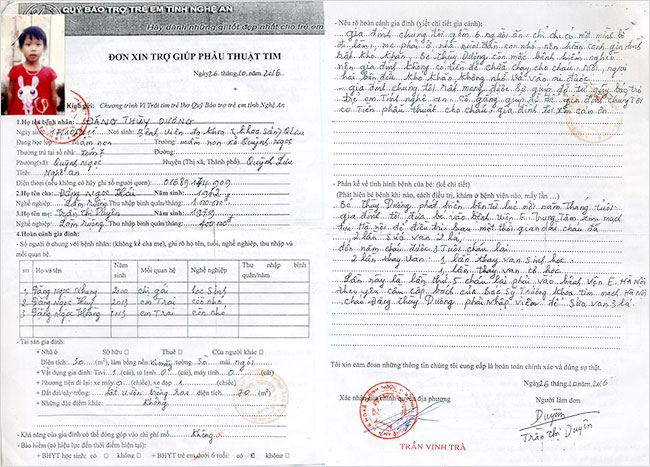 QUỸ BẢO TRỢ TRẺ EM TỈNH NGHỆ AN
Hãy dành những gì tốt đẹp nhất cho trẻ em
ĐƠN XIN TRỢ GIÚP PHẪU THUẬT TIM
Ngày 26 tháng 10 năm 2016
Kính gửi: Chương trình Vì Trái tim trẻ thơ Quỹ Bảo trợ trẻ em tỉnh Nghệ An
1. Họ tên bệnh nhân: ĐẶNG THÙY DƯƠNG
Ngày sinh: Nơi sinh: Bệnh viện đa khoa
Đang học lớp: Mầm non Trường: mầm non xã Quỳnh Ngọc
Thường trú tại số nhà: Xóm 7
Phường(xã): Quỳnh Ngọc Huyện (Thị xã, Thành phố) Quỳnh Lưu
Tỉnh: Nghệ an
Điện thoại (nếu không có hãy ghi số người quen): 01689 174 909
2. Họ tên cha: Đặng Ngọc Thái Năm sinh: 1972
Nghề nghiệp: Làm ruộng Thu nhập bình quân/tháng:
3. Họ tên mẹ: Trần Thị Duyên Năm sinh: 1979
Nghề nghiệp: Làm ruộng Thu nhập bình quân/tháng:
4. Hoàn cảnh gia đình:
- Số người ở chung với bệnh nhân: (không kể cha mẹ), ghi rõ họ tên, tuổi, nghề nghiệp, thu nhập và
mối quan hệ.
STT Họ và tên Năm sinh Mối quan hệ Nghề nghiệp Thu nhập bình quân/năm
1 Đặng Ngọc Nhung 2000 chị gái học sinh
2 Đặng Ngọc Huy 2013 em Trai còn nhỏ
3 Đặng Ngọc Hoàng 2015 em Trai còn nhỏ
- Tài sản gia đình:
+ Nhà ở Sở hữu □ Thuê □ Của người khác □
Diện tích: 50 (m²), làm bằng nền xi măng tường sò mái ngói
+ Vật dụng gia đình: Tivi 1 (cái), tủ lạnh 0 (cái), máy tính 0 (cái)
+ Phương tiện đi lại: xe máy 0 (chiếc), xe đạp 1 (chiếc)
+ Đất đai/cây trồng: diện tích 70 (m²)
+ Những đặc điểm khác: không
- Khả năng của gia đình có thể đóng góp vào chi phí mổ không
- Bảo hiểm (có hiệu lực đến thời điểm hiện tại):
+ BHYT học sinh: có □ không □ + BHYT trẻ em dưới 6 tuổi: có không □
- Nêu rõ hoàn cảnh gia đình (viết chi tiết gia cảnh):
gia đình chúng tôi gồm 6 người ăn, chỉ có mình bố
đi làm, mẹ phải ở nhà nuôi đàn con nhỏ, nên hoàn cảnh gia đình
rất khó khăn. Bé Thùy Dương còn mắc bệnh hiểm nghèo
nên gia đình không có tiền để chữa cho cháu. Nội, ngoại
hai bên đều khó khăn không nhờ và vào ai được
gia đình chúng tôi rất mong được sự giúp đỡ từ quỹ bảo trợ
trẻ em Tỉnh nghệ an. Cố gắng giúp đỡ để gia đình chúng tôi
có tiền phẫu thuật cho cháu, gia đình tôi xin cảm ơn
- Phần kể về tình hình bệnh của bé: (kể chi tiết)
(Phát hiện bé bệnh khi nào, cách điều trị, khám ở bệnh viện nào, mấy lần ...)
Bé Thùy Dương phát hiện bệnh từ lúc mới năm tháng tuổi
gia đình tôi đưa bé vào bệnh viện E Trung Tâm tim mạch
Hà Nội để điều trị. Sau một thời gian dài cháu đã
2 lần sửa van 2 lá,
đến năm cháu được 3 tuổi cháu lại
2 lần thay van: 1 lần thay van sinh học
1 lần thay van cơ học
Lần này là lần thứ 5 cháu lại phải vào bệnh viện E Hà Nội
theo yêu cầu cấp bách của Bác sỹ Trưởng khoa tim mạch Hà Nội
cháu Đặng Thùy Dương phải nhập viện để sửa van 3 lá.
Tôi xin cam đoan những thông tin chúng tôi cung cấp là hoàn toàn chính xác và đúng sự thật.
Ngày 26 / 10 / 2016
Xác nhận của chính quyền địa phương
Người làm đơn
Duyên
Trần Thị Duyên
TRẦN VINH TRÀ